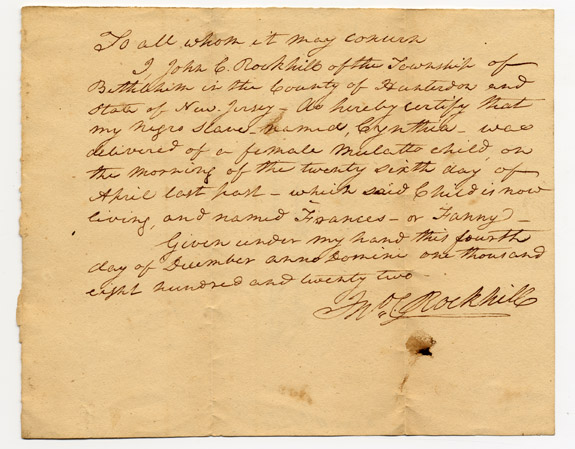 To all whom it may concern
I, John C. Rockhill of the Township of
Bethlehem in the County of Hunterdon and
State of New-Jersey - do hereby certify that
my Negro Slave named, Cynthia - was
delivered of a female Mulatto child, on
the morning of the twenty sixth day of
April last past - which said Child is now
living, and named Frances - or Fanny -
Given under my hand this fourth
day of December anno Domini one thousand
eight hundred and twenty two
Jno. C. Rockhill